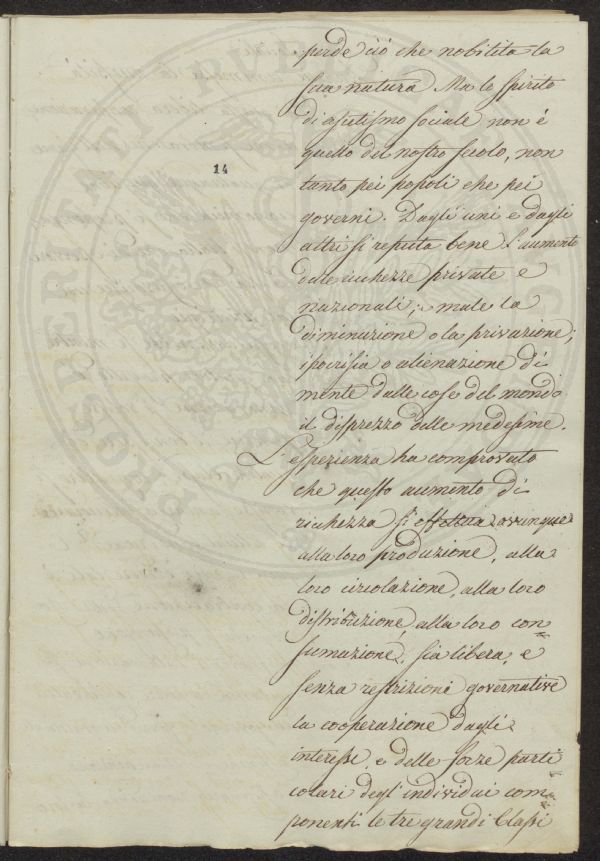 perde ciò che nobilita la
sua natura Ma lo spirito
di ascetismo sociale non è
quello del nostro secolo, non
14
tanto pei popoli che pei
governi. Dagli uni e dagli
altri si reputa bene l'aumento
delle richezze private e
nazionali; male la
diminuzione o la privazione;
ipocrisia o alienazione di
mente dalle cose del mondo
il disprezzo delle medesime.
L'esperienza ha comprovato
che questo aumento di
richezza si otterrà ovunque
alla loro produzione, alla
loro circolazione, alla loro
distribuzione, alla loro con
sumazione, sia libera, e
senza restrizioni governative
la cooperazione dagli
interessi, e delle forze parti
colari degl'individui com
ponenti le tre grandi Classi